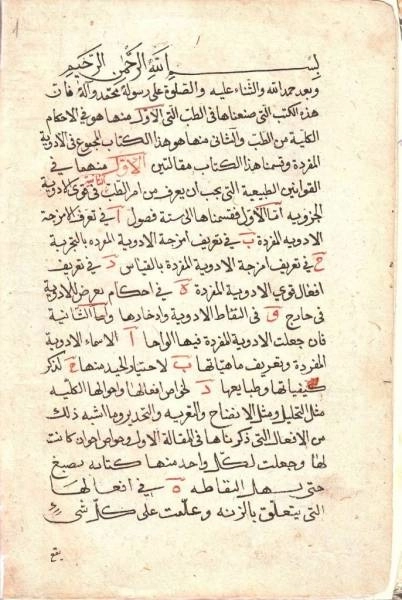 بسم الله الرحمن الرحيم
وبعد حمد الله والثناء عليه والصلوة على رسوله محمد وآله فان
هذه الكتب التي صنعناها في الطب التي الاول منها هو في الاحكام
الكلية من الطب والثاني منها هو هذا الكتاب المجموع في الادوية
المفردة وقسمنا هذا الكتاب مقالتين الاول منهما في
القوانين الطبيعية التي يجب ان يعرف من امر الطب في قوى الادوية
الجزويه اما الاول فقسمناها الى ستة فصول ا في تعرف امزجة
الادويه المفردة ب في تعريف امزجة الادوية المفرده بالتجربة
ج في تعريف امزجة الادوية المفردة بالقياس د في تعريف
افعال قوى الادوية المفردة ه في احكام يعرض للادوية
في خارج و في التقاط الادوية وادخارها واما الثانية
فان جعلت الادوية المفردة فيها الواحا ا الاسماء الادوية
المفردة وتعريف ماهياتها ب لاختيار الجيد منها ج لذكر
كيفياتها وطبايعها د لخواص افعالها واحوالها الكليه
مثل التحليل ومثل الانضاج والتغريه والتخدير وما اشبه ذلك
من الافعال التي ذكرناها في المقالة الاولى وخواص اخر ان كانت
لها وجعلت لكل واحد منها كتابه بصبغ
حتى يسهل التقاطه ه في افعالها
التي يتعلق بالزنه وعلمت على كل شي
يقع